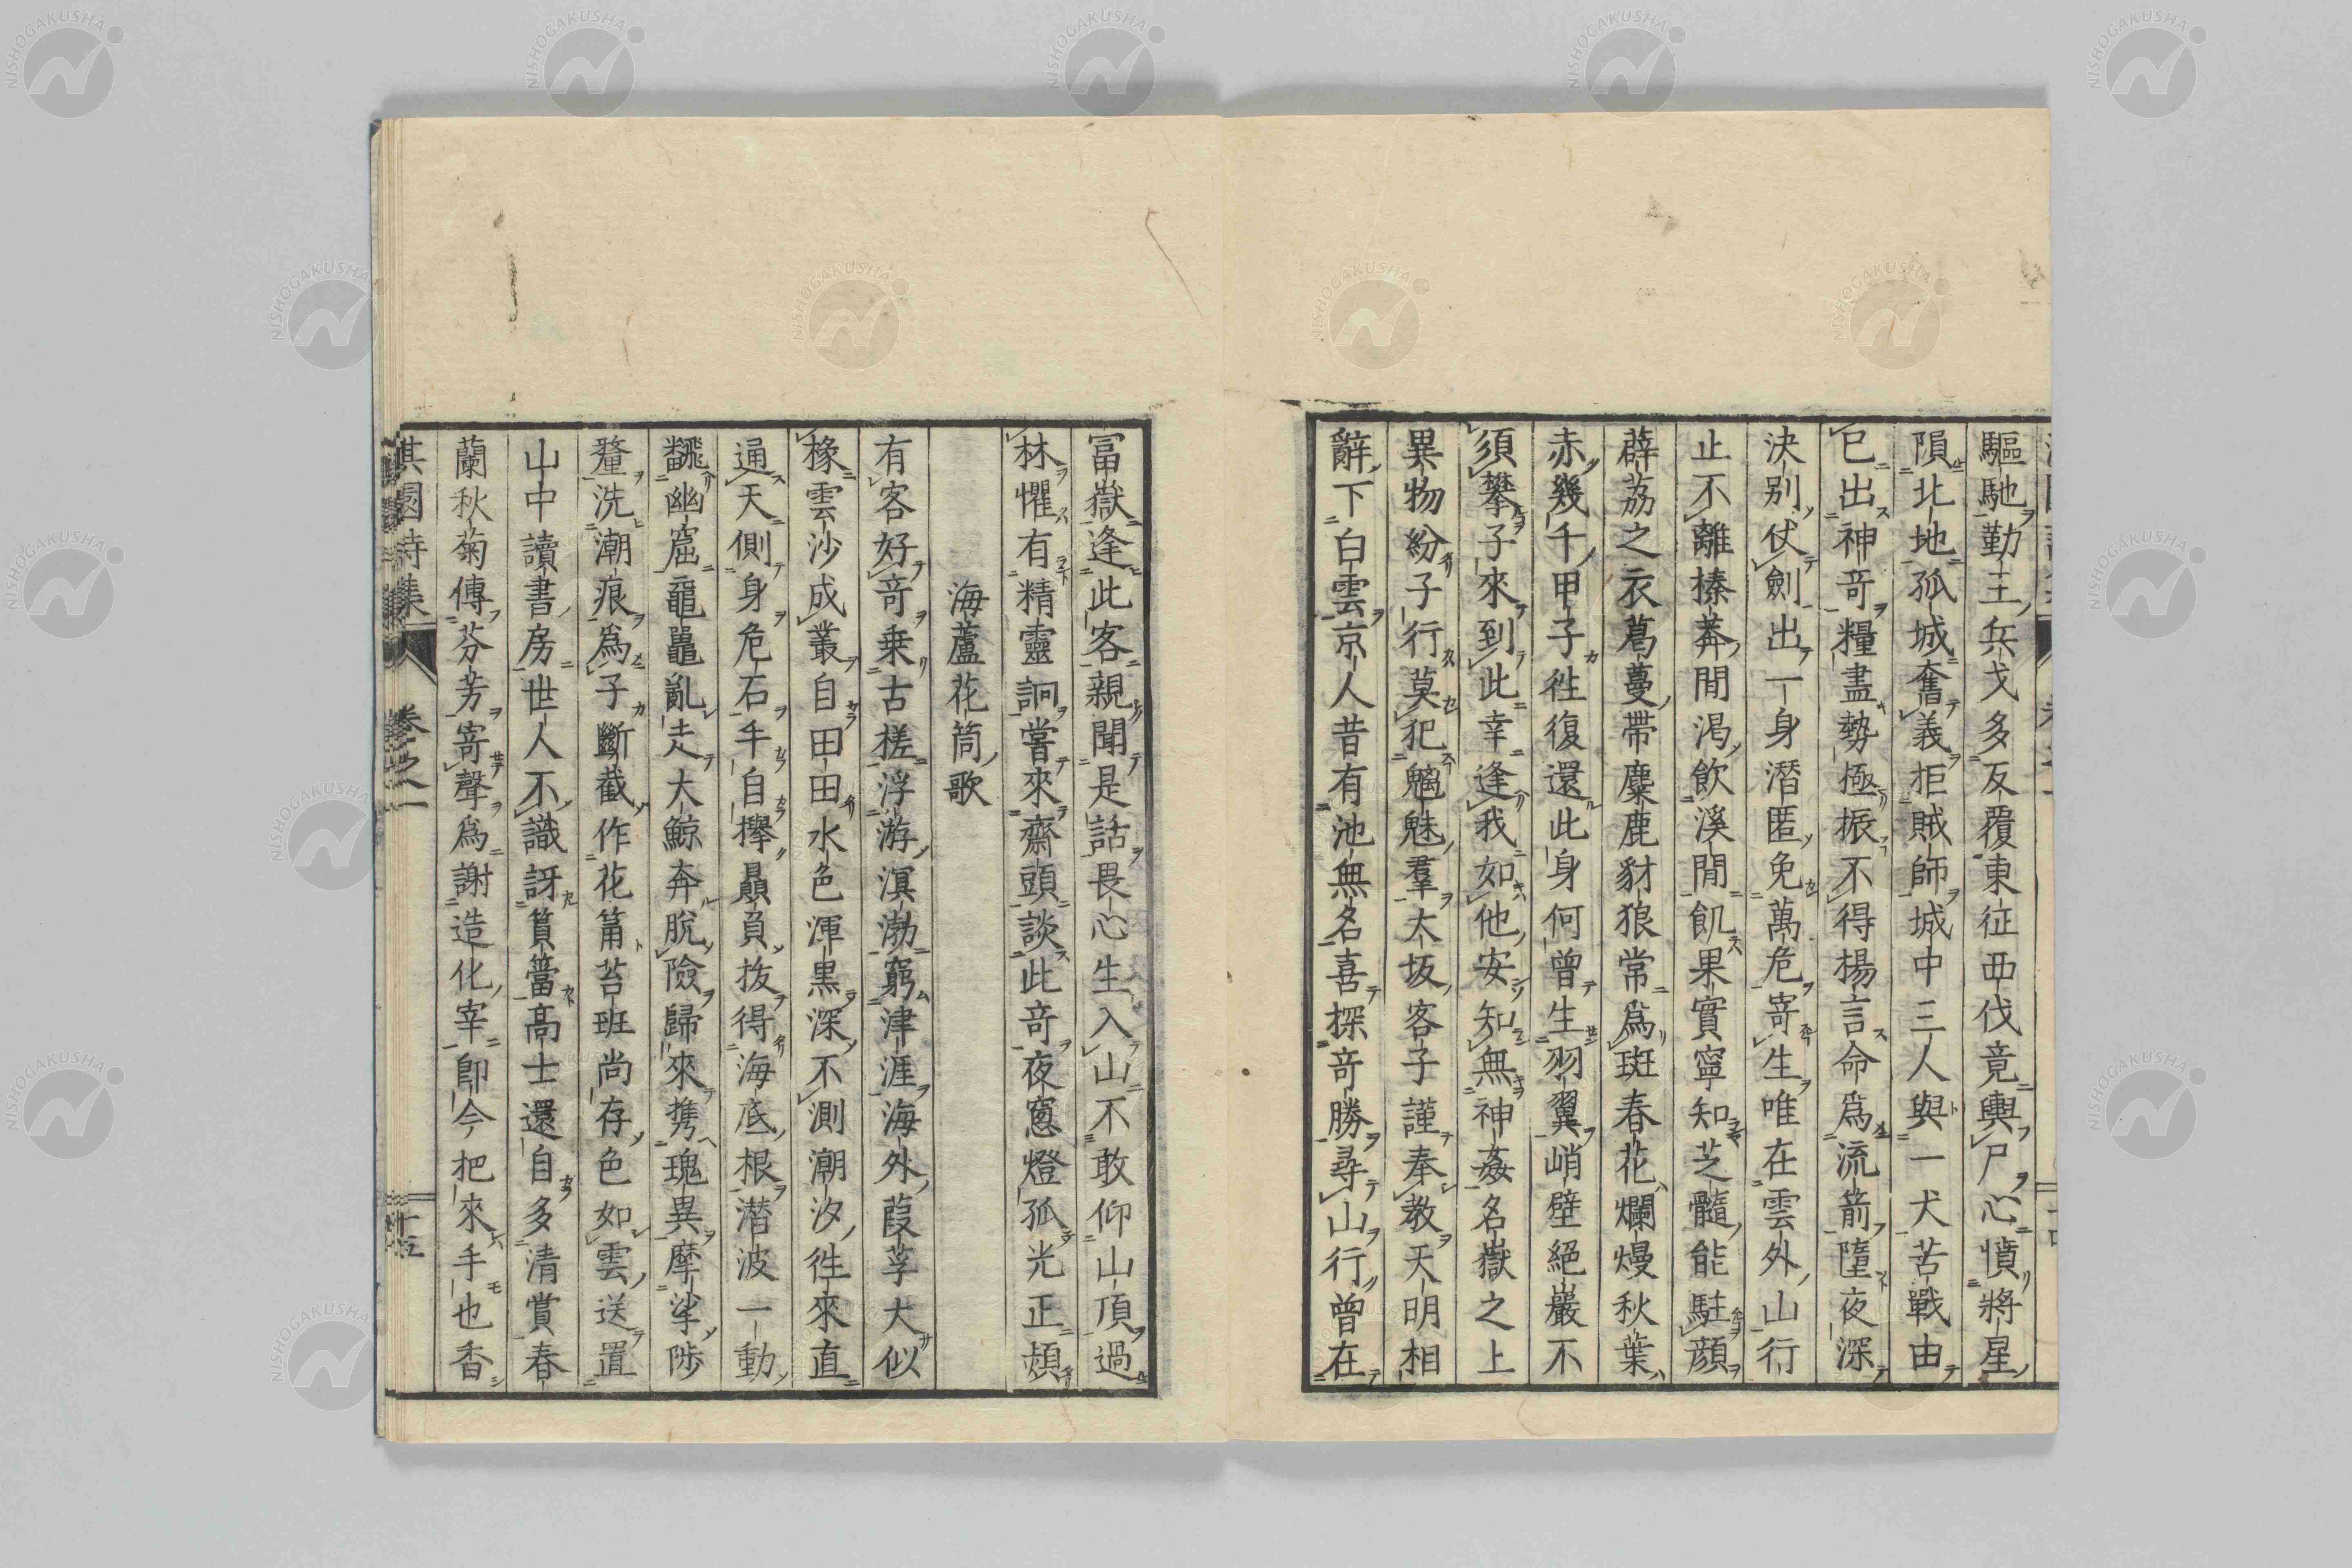 驅馳勤王兵戈多反覆東征西伐竟輿尸心憤將星
隕北地孤城奮義拒賊師城中三人與一犬苦戰由
已出神奇糧盡勢極振不得揚言命爲流箭墮夜深
決別仗劍出一身潛匿免萬危寄生唯在雲外山行
止不離榛莽間渇飲溪間飢果實寧知芝髓能駐顔
薜茘之衣葛蔓帶麋鹿豺狼常爲斑春花爛熳秋葉
赤幾千甲子徃復還此身何曾生羽翼峭壁絕巖不
須攀子來到此幸逢我如他安知無神姦名嶽之上
異物紛子行莫犯魑魅羣大坂客子謹奉教天明相
辭下白雲京人昔有池無名喜探奇勝尋山行曾在
冨嶽逢此客親聞是話畏心生入山不敢仰山頂過
林懼有精靈詗嘗來齋頭談此奇夜窓燈孤光正頳
海蘆花筒歌
有客好奇乗古槎浮游溟渤窮津涯海外葭莩大似
椽雲沙成叢自田田水色渾黒深不測潮汐徃來直
通天側身危石手自攑贔負拔得海底根潛波一動
飜幽窟黿鼉亂走大鯨奔脫險歸來携瑰異摩挲陟
釐洗潮痕爲子斷截作花筩苔斑尚存色如雲送置
山中讀書房世人不識訝篔簹高士還自多清賞春
蘭秋菊傳芬芳寄聲爲謝造化宰即今把來手也香
淇園詩集 卷之一 十五
NISHOGAKUSHA